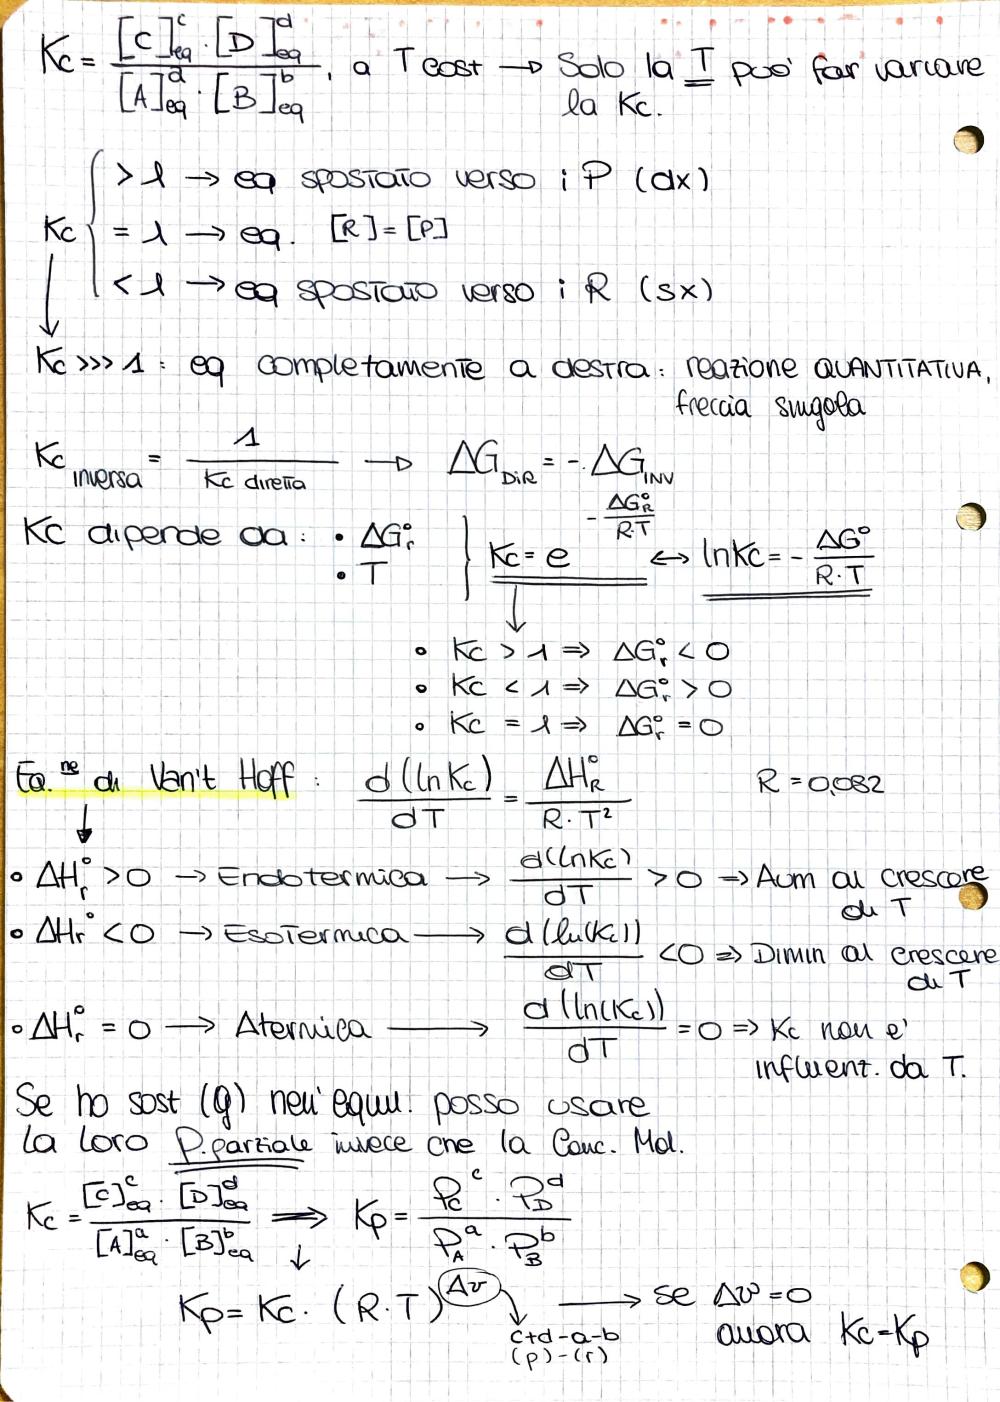 Kc = [C]^c eq · [D]^d eq / [A]^a eq · [B]^b eq , a T cost → Solo la T può far variare
la Kc.
Kc { > 1 → eq spostato verso i P (dx)
= 1 → eq. [R] = [P]
< 1 → eq spostato verso i R (sx)
Kc >>> 1 : eq completamente a destra : reazione QUANTITATIVA,
freccia singola
Kc inversa = 1 / Kc diretta → ΔG DIR = -. ΔG INV
Kc dipende da : • ΔG°r } Kc = e^(- ΔG°R / R·T) ↔ ln Kc = - ΔG° / R·T
• T
• Kc > 1 ⇒ ΔG°r < 0
• Kc < 1 ⇒ ΔG°r > 0
• Kc = 1 ⇒ ΔG°r = 0
Eq.ne di Van't Hoff : d(ln Kc) / dT = ΔH°R / R·T² R = 0,082
• ΔH°r > 0 → Endotermica → d(lnKc) / dT > 0 ⇒ Aum al crescere
di T
• ΔHr° < 0 → Esotermica → d(ln(Kc)) / dT < 0 ⇒ Dimin al crescere
di T
• ΔH°r = 0 → Atermica → d(ln(Kc)) / dT = 0 ⇒ Kc non e'
influent. da T.
Se ho sost (g) nell'equil. posso usare
la loro P.parziale invece che la Conc. Mol.
Kc = [C]^c eq · [D]^d eq / [A]^a eq · [B]^b eq ⇒ Kp = P_C^c · P_D^d / P_A^a · P_B^b
Kp = Kc · (R·T)^Δν → se Δν = 0
c+d-a-b allora Kc=Kp
(p)-(r)